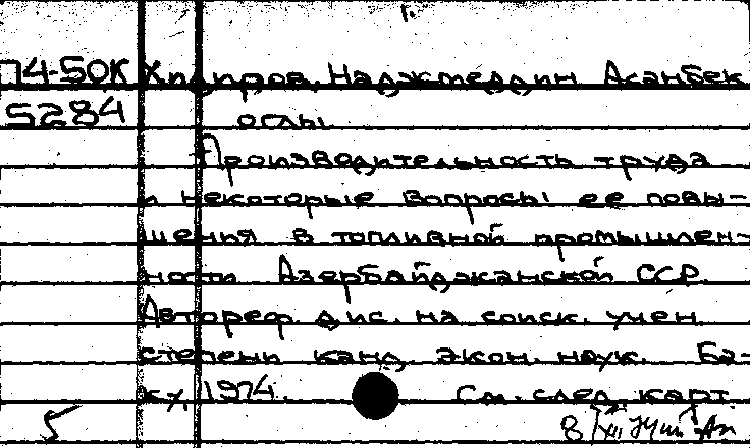 1.
П4-50К Хидиров, Наджмеддин Асанбек
5284 оглы
Производительность труда
и некоторые вопросы ее повы-
шения в топливной промышлен-
ности Азербайджанской ССР.
Автореф. дис. на соиск. учен.
степени канд. экон. наук. Ба-
ку, 1974. См. след. карт.
5 8/XII